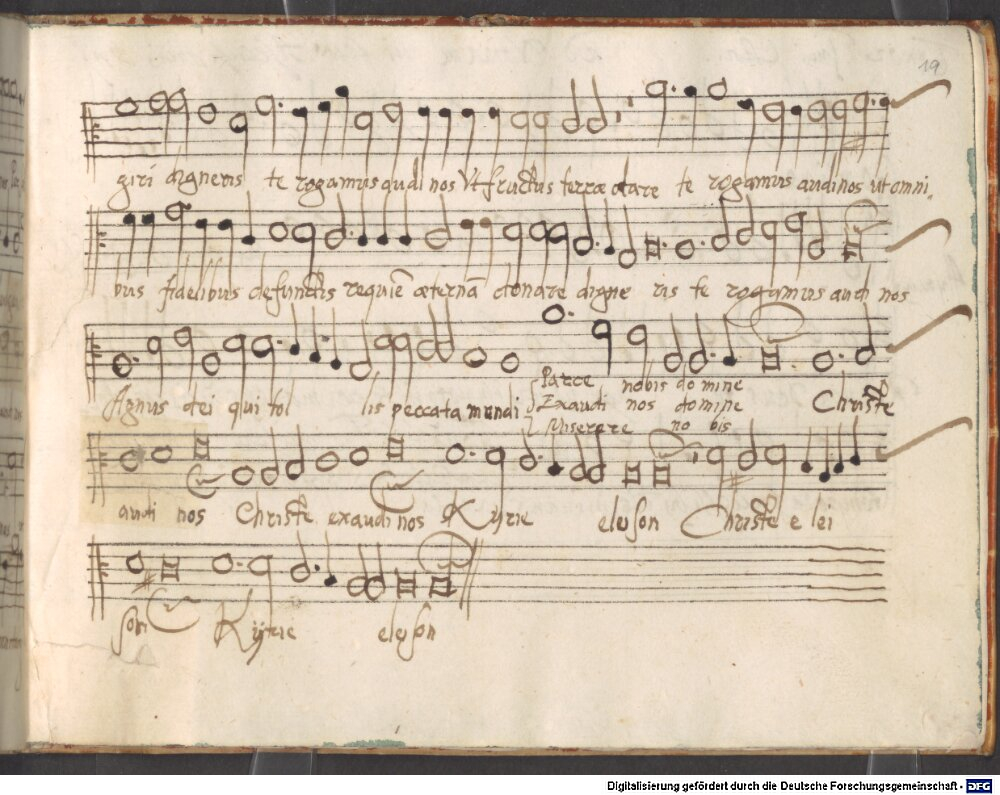 19
giri digneris te rogamus audi nos Ut fructus terræ dare te rogamus audi nos ut omni
bus fidelibus defunctis requiē æternā donare digne ris te rogamus audi nos
Agnus dei qui tol lis peccata mundi Parce nobis domine Christe
Exaudi nos domine
Miserere no bis
audi nos Christe exaudi nos Kyrie eleyson Christe e lei
son Kyrie eleyson
Digitalisierung gefördert durch die Deutsche Forschungsgemeinschaft - DFG